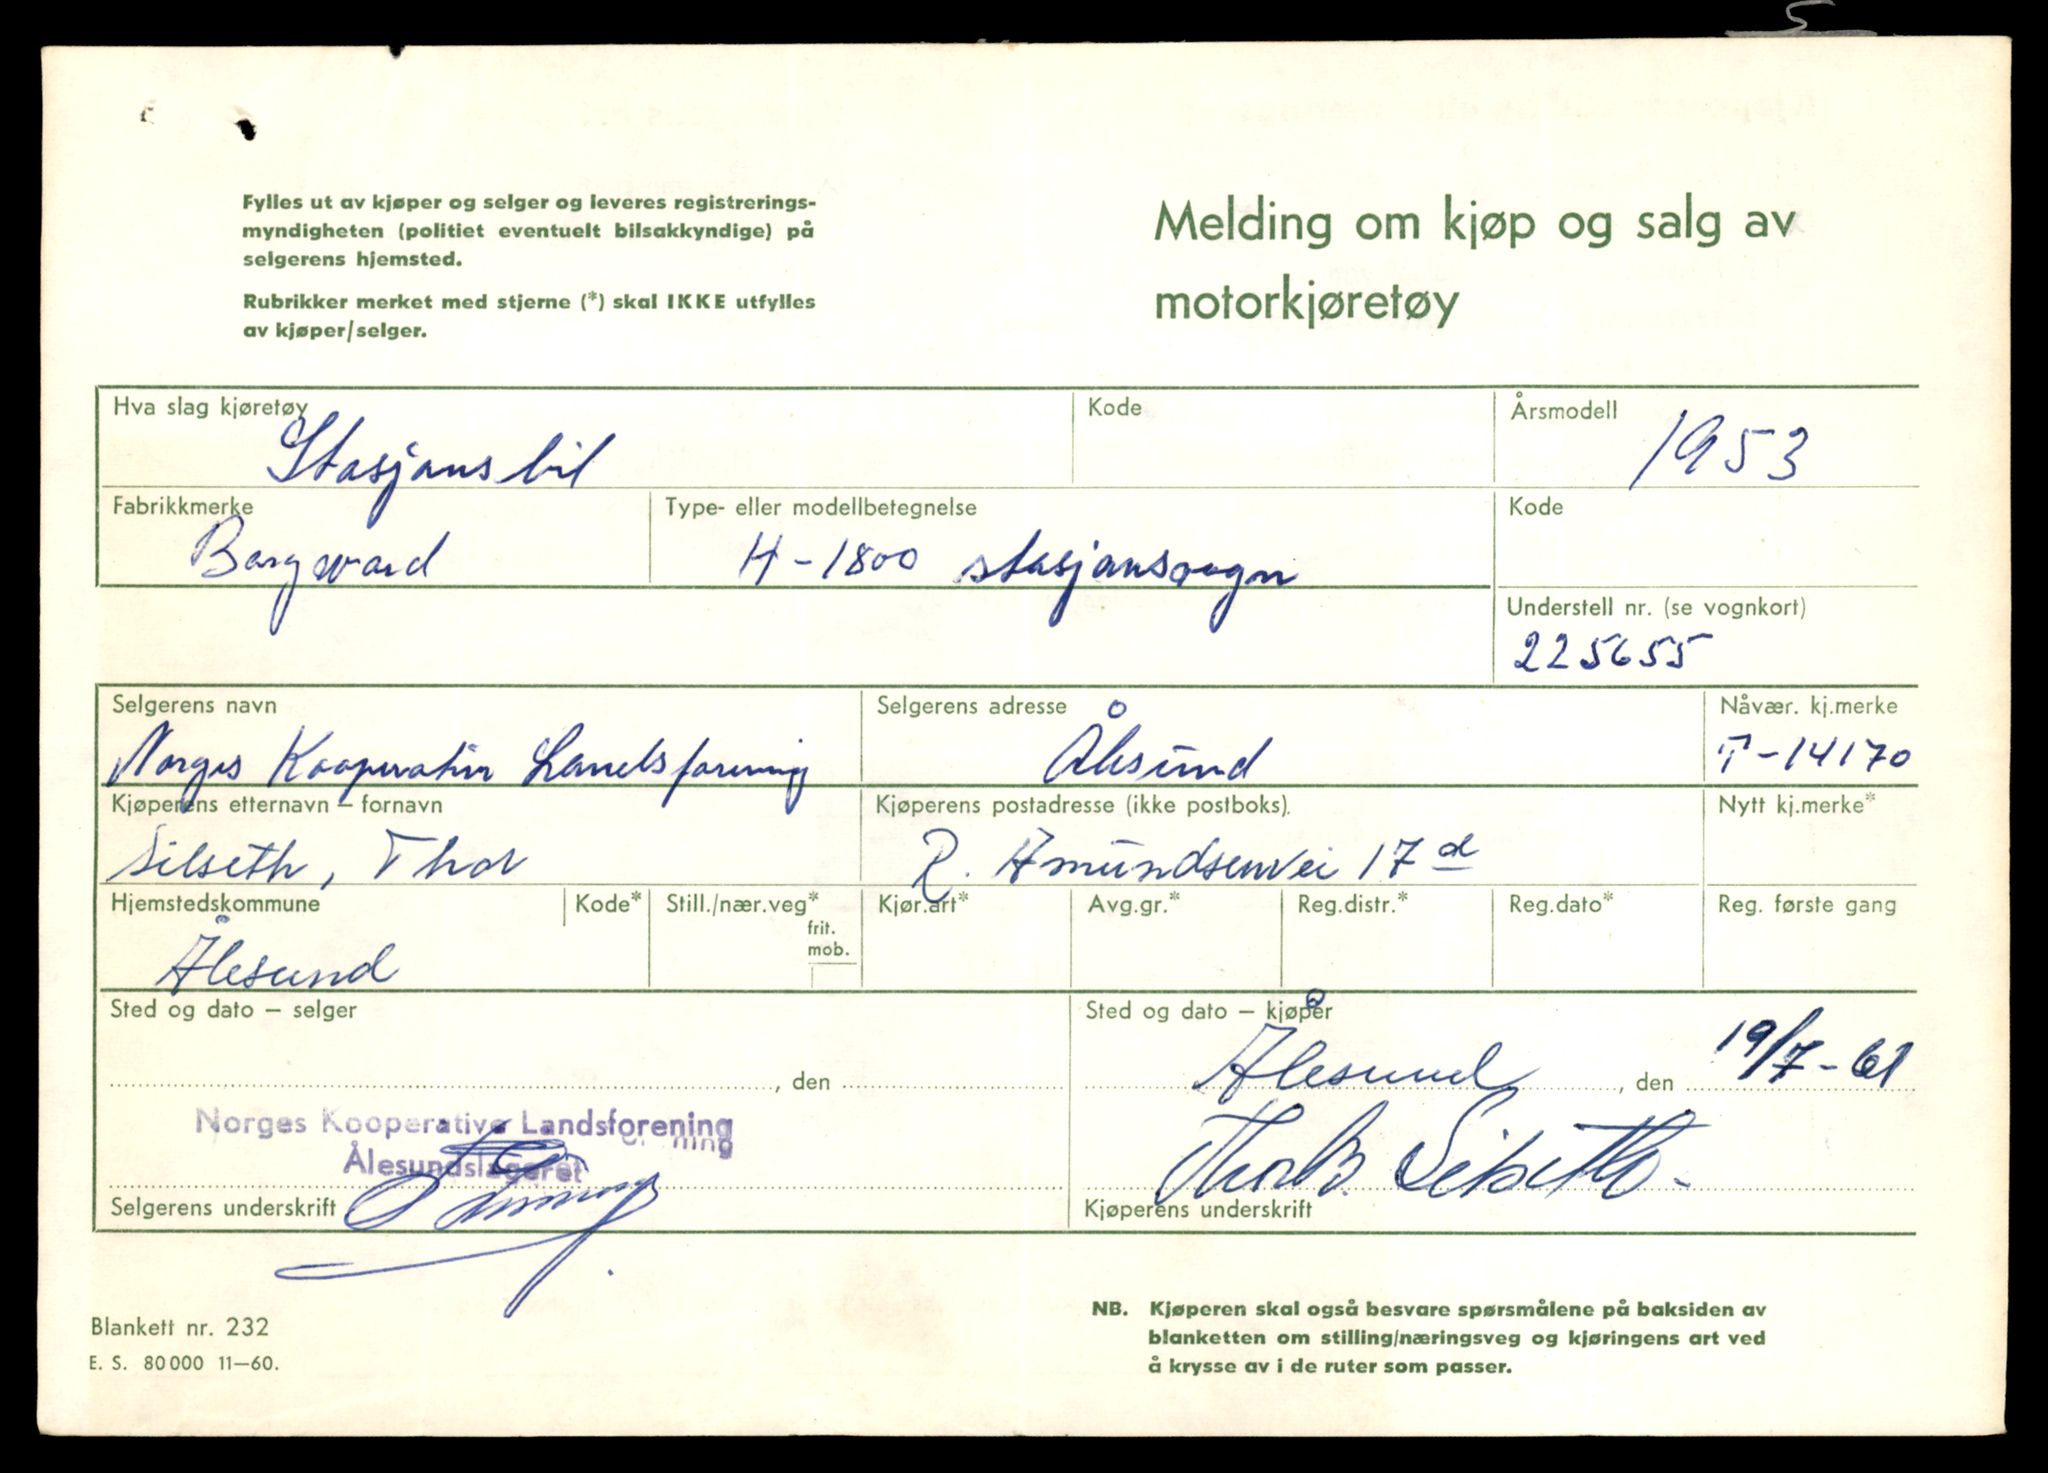 5
Fylles ut av kjøper og selger og leveres registrerings-
myndigheten (politiet eventuelt bilsakkyndige) på
selgerens hjemsted.
Rubrikker merket med stjerne (*) skal IKKE utfylles
av kjøper/selger.
Melding om kjøp og salg av
motorkjøretøy
Hva slag kjøretøy
Stasjonsbil
Kode
Årsmodell
1953
Fabrikkmerke
Borgward
Type- eller modellbetegnelse
H-1800 stasjonsvogn
Kode
Understell nr. (se vognkort)
225655
Selgerens navn
Norges Kooperative Landsforening
Selgerens adresse
Ålesund
Nåvær. kj.merke
T-14170
Kjøperens etternavn – fornavn
Silseth, Thor
Kjøperens postadresse (ikke postboks).
R. Amundsenvei 17 d
Nytt kj.merke*
Hjemstedskommune
Ålesund
Kode*
Still./nær.veg*
frit.
mob.
Kjør.art*
Avg.gr.*
Reg.distr.*
Reg.dato*
Reg. første gang
Sted og dato – selger
, den
Norges Kooperative Landsforening
Ålesundslageret
Selgerens underskrift
Sted og dato – kjøper
Ålesund, den 19/7-61
Thor B. Silseth
Kjøperens underskrift
Blankett nr. 232
E. S. 80000 11—60.
NB. Kjøperen skal også besvare spørsmålene på baksiden av
blanketten om stilling/næringsveg og kjøringens art ved
å krysse av i de ruter som passer.